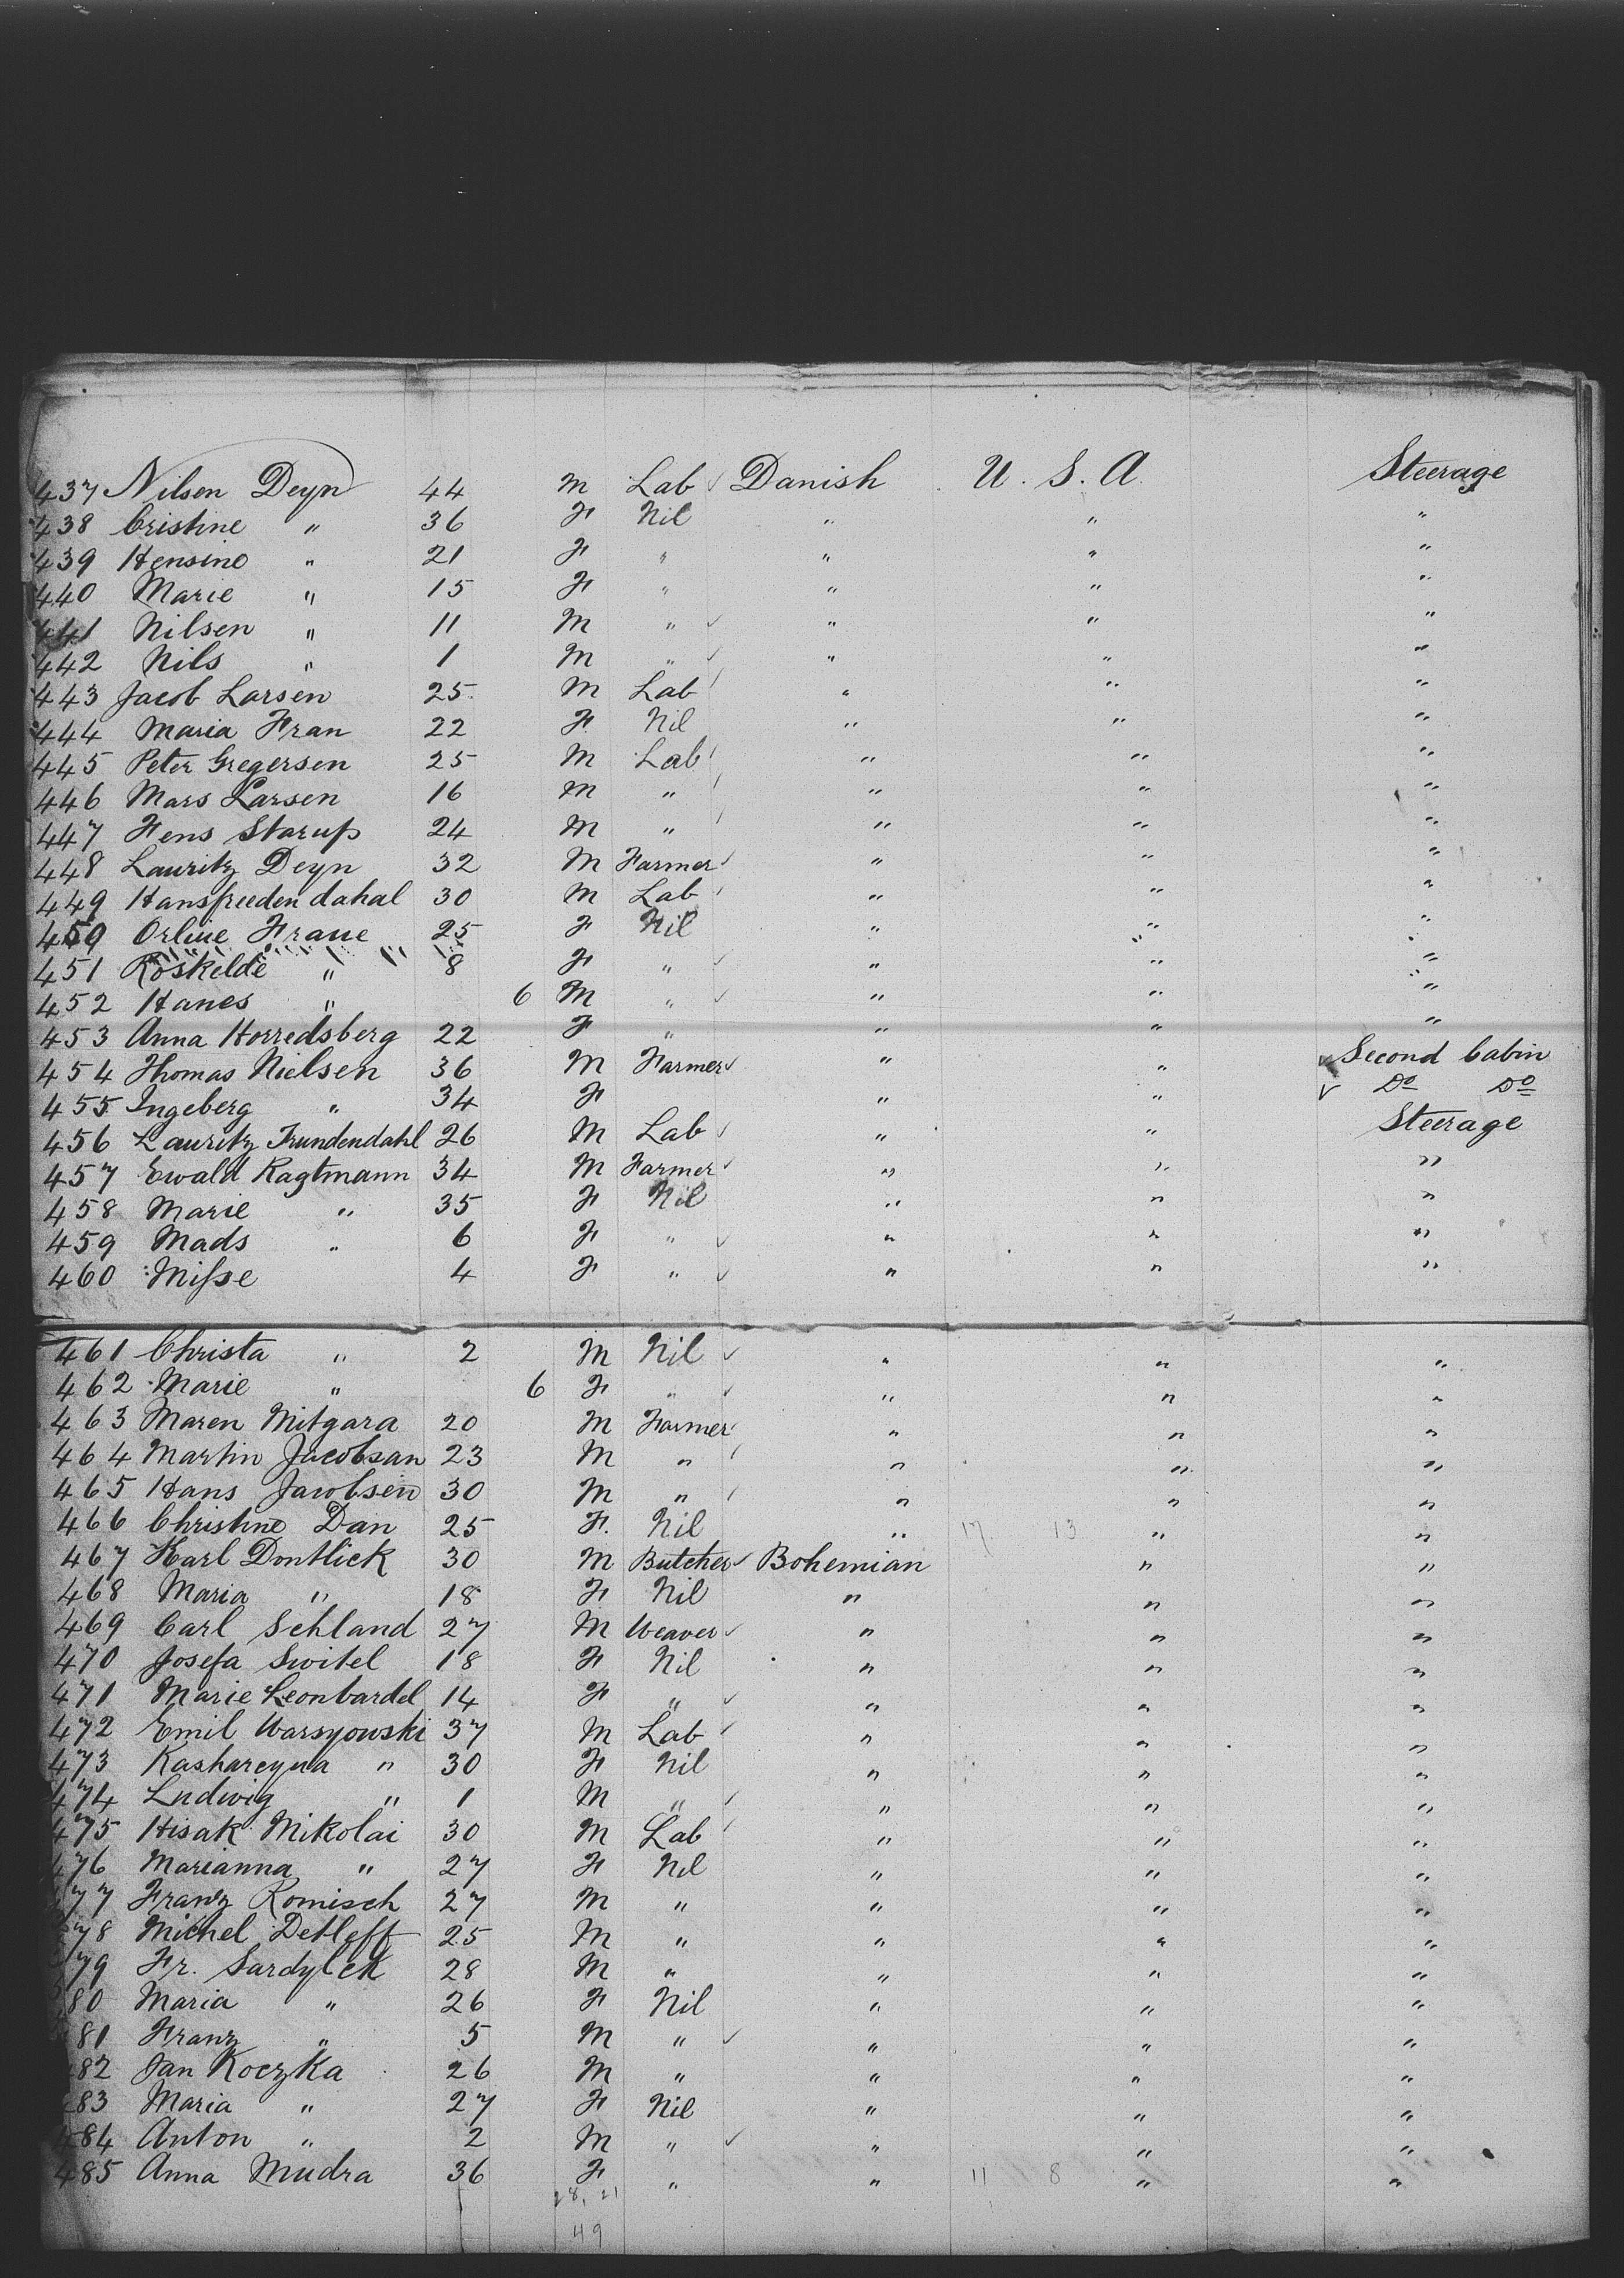 437 Nilsen Deyn 44 M Lab ✓ Danish U. S. A. Steerage
438 Cristine " 36 F Nil " " "
439 Hensine " 21 F " " " "
440 Marie " 15 F " " " "
441 Nilsen " 11 M " ✓ " " "
442 Nils " 1 M " ✓ " " "
443 Jacob Larsen 25 M Lab " " "
444 Maria Fran 22 F Nil " " "
445 Peter Gregersen 25 M Lab " " "
446 Mars Larsen 16 M " " " "
447 Jens Starup 24 M " " " "
448 Lauritz Deyn 32 M Farmer ✓ " " "
449 Hansfreeden dahal 30 M Lab " " "
450 Orline Fraue 25 F Nil " " "
451 Roskelde " 8 F " ✓ " " "
452 Hanes " 6 M " ✓ " " "
453 Anna Horredsberg 22 F " " " "
454 Thomas Nielsen 36 M Farmer ✓ " " ✓ Second Cabin
455 Ingeberg " 34 F " " ✓ Do Do
456 Lauritz Trundendahl 26 M Lab ✓ " " Steerage
457 Ewald Ragtmann 34 M Farmer ✓ " " "
458 Marie " 35 F Nil " " "
459 Mads " 6 F " ✓ " " "
460 Misse 4 F " ✓ " " "
461 Christa " 2 M Nil ✓ " " "
462 Marie " 6 F " ✓ " " "
463 Maren Mitgara 20 M Farmer " " "
464 Martin Jacobsan 23 M " " " "
465 Hans Jacobsen 30 M " " " "
466 Christine Dan 25 F. Nil " 17 13 " "
467 Karl Dontlick 30 M Butcher ✓ Bohemian " "
468 Maria " 18 F Nil " " "
469 Carl Schland 27 M Weaver ✓ " " "
470 Josefa Switel 18 F Nil " " "
471 Marie Leonbardel 14 F " ✓ " " "
472 Emil Warsyowski 37 M Lab " " "
473 Kashareyna " 30 F Nil " " "
474 Ludwig " 1 M " " " "
475 Hisak Mikolai 30 M Lab " " "
476 Marianna " 27 F Nil " " "
477 Franz Romisch 27 M " " " "
478 Michel Detleff 25 M " " " "
479 Fr. Sardylek 28 M " " " "
480 Maria " 26 F Nil " " "
481 Franz " 5 M " ✓ " " "
482 Jan Koczka 26 M " " " "
483 Maria " 27 F Nil " " "
484 Anton " 2 M " ✓ " " "
485 Anna Mudra 36 F " " 11 8 " "
28, 21
49